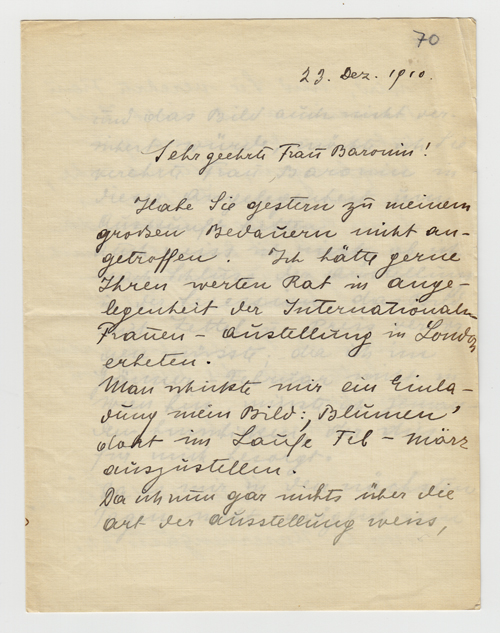 70
23. Dez. 1910.
Sehr geehrte Frau Baronin!
Habe Sie gestern zu meinem
großen Bedauern nicht an-
getroffen. Ich hätte gerne
Ihren werten Rat in ange-
legenheit der Internationalen
Frauen-ausstellung in London
erbeten.
Man schickte mir ein Einla-
dung mein Bild: „Blumen'
dort im Laufe Feb - März
auszustellen.
Da ich nun gar nichts über die
art der ausstellung weiss,